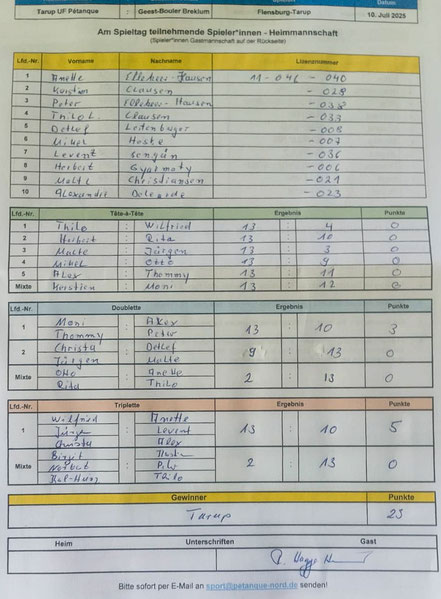 Tarup UF Pétanque Geest-Bouler Breklum Flensburg-Tarup 10. Juli 2025
Am Spieltag teilnehmende Spieler*innen - Heimmannschaft
(Spieler*innen Gastmannschaft auf der Rückseite)
Lfd.-Nr. Vorname Nachname Lizenznummer
1 Anette Hausen 11-046-040
2 Kerstin Clausen -028
3 Peter Hausen -038
4 Thilo Clausen -033
5 Detlef Leitenbüger -008
6 Mikel Hoske -007
7 Levent Sengün -036
8 Herbert Gyarmaty -006
9 Malte Christiansen -021
10 Alexander -023
Lfd.-Nr. Tête-à-Tête Ergebnis Punkte
1 Thilo : Wilfried 13 : 4 0
2 Herbert : Rita 13 : 10 0
3 Malte : Jürgen 13 : 3 0
4 Mikel : Otto 13 : 9 0
5 Alex : Thommy 13 : 11 0
Mixte Kerstien : Moni 13 : 12 0
Lfd.-Nr. Doublette Ergebnis Punkte
1 Moni : Alex 13 : 10 3
Thommy : Peter
2 Christa : Detlef 9 : 13 0
Jürgen : Malte
Mixte Otto : Anette 2 : 13 0
Rita : Thilo
Lfd.-Nr. Triplette Ergebnis Punkte
1 Wilfried : Anette 13 : 10 5
Levent
Christa Alex
Mixte Birgit : 2 : 13 0
Norbert
Thilo
Gewinner Punkte
Tarup 23
Heim Unterschriften Gast
Bitte sofort per E-Mail an sport@petanque-nord.de senden!